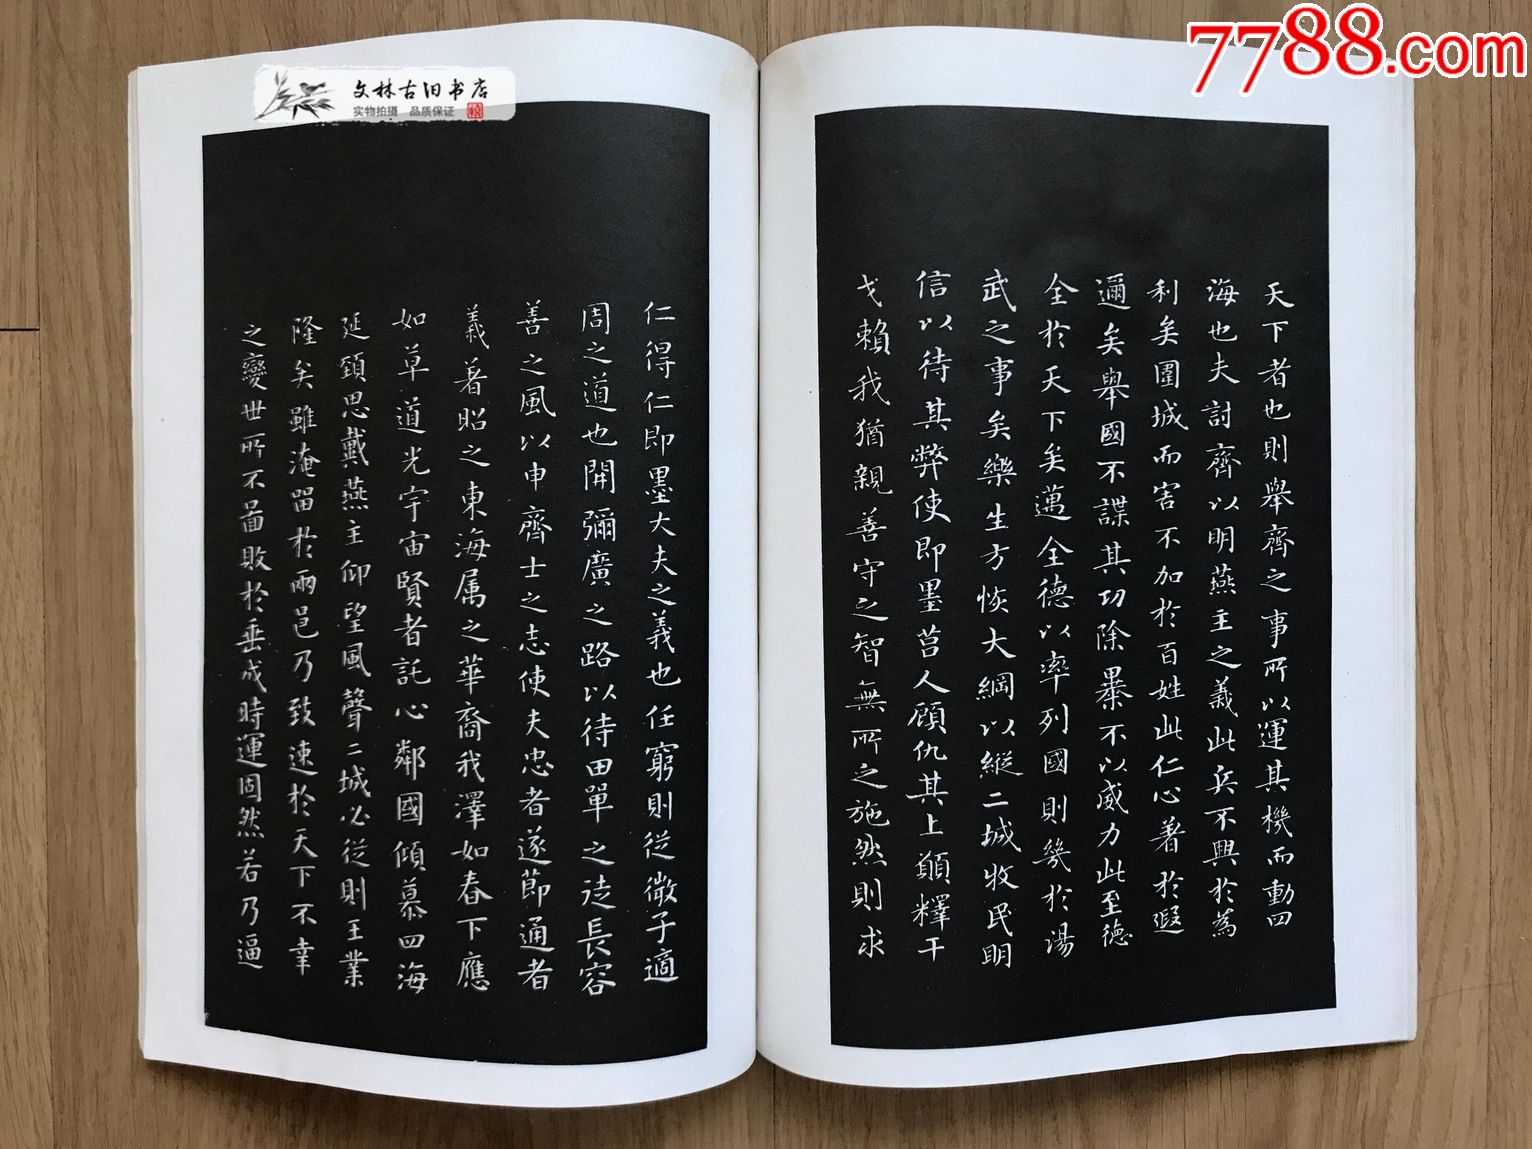 文林古旧书店
实物拍摄 品质保证
7788.com
天下者也則舉齊之事所以運其機而動四
海也夫討齊以明燕主之義此兵不興於為
利矣圍城而害不加於百姓此仁心著於遐
邇矣舉國不謀其功除暴不以威力此至德
全於天下矣邁全德以率列國則幾於湯
武之事矣樂生方恢大綱以縱二城牧民明
信以待其弊使即墨莒人顧仇其上願釋干
戈賴我猶親善守之智無所之施然則求
仁得仁即墨大夫之義也任窮則從微子適
周之道也開彌廣之路以待田單之徒長容
善之風以申齊士之志使夫忠者遂節通者
義著昭之東海属之華裔我澤如春下應
如草道光宇宙賢者託心鄰國傾慕四海
延頸思戴燕主仰望風聲二城必從則王業
隆矣雖淹留於兩邑乃致速於天下不幸
之變世所不啚敗於垂成時運固然若乃逼